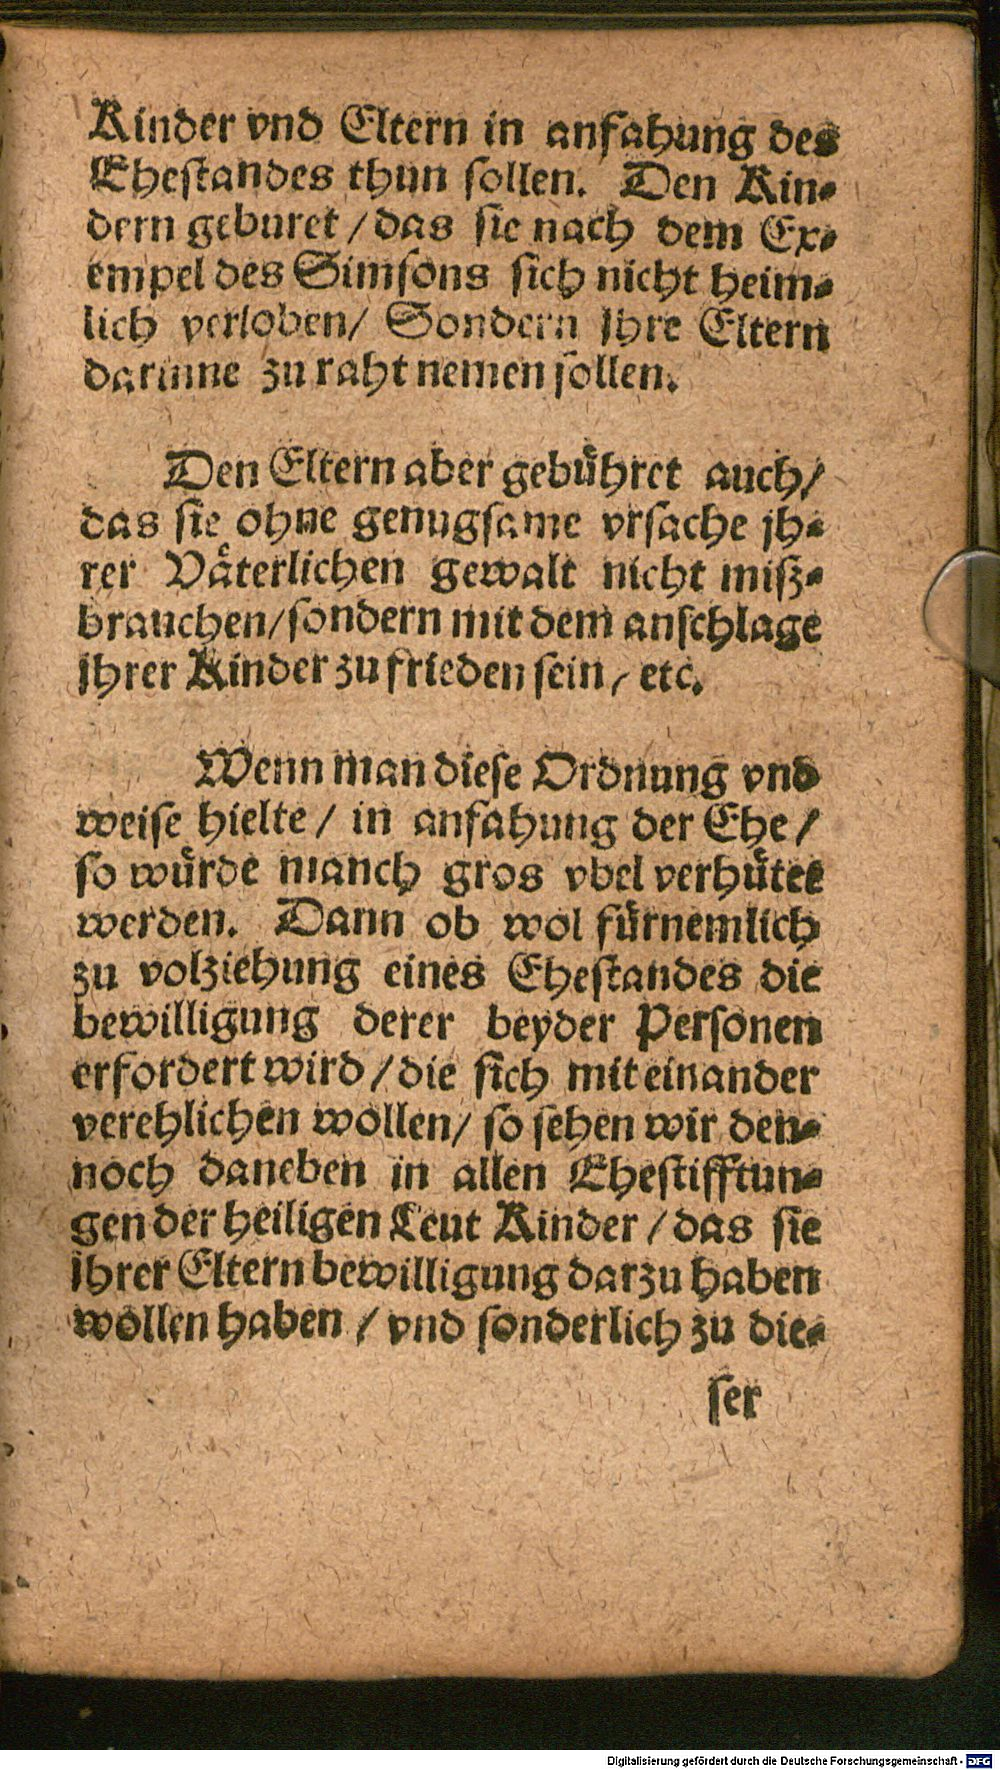 Kinder vnd Eltern in anfahung des
Ehestandes thun sollen. Den Kin-
dern geburet / das sie nach dem Ex-
empel des Simsons sich nicht heim-
lich verloben / Sondern jhre Eltern
darinne zu raht nemen sollen.
Den Eltern aber gebuͤhret auch /
das sie ohne genugsame vrsache jh-
rer Vaͤterlichen gewalt nicht misz-
brauchen / sondern mit dem anschlage
jhrer Kinder zu frieden sein / etc.
Wenn man diese Ordnung vnd
weise hielte / in anfahung der Ehe /
so wuͤrde manch gros vbel verhuͤtet
werden. Dann ob wol fuͤrnemlich
zu volziehung eines Ehestandes die
bewilligung derer beyder Personen
erfordert wird / die sich mit einander
verehlichen wollen / so sehen wir den-
noch daneben in allen Ehestifftun-
gen der heiligen Leut Kinder / das sie
jhrer Eltern bewilligung darzu haben
woͤllen haben / vnd sonderlich zu die-
ser
Digitalisierung gefördert durch die Deutsche Forschungsgemeinschaft - DFG